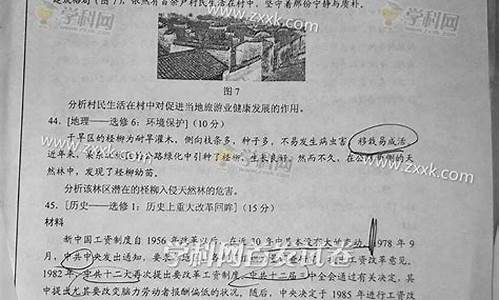 延成格局(图7),依然有百余户村民生活在村中,坚守着那份宁静与质朴。
图7
分析村民生活在村中对促进当地旅游业健康发展的作用。
44. [地理——选修6:环境保护](10分)
干旱区的柽柳为耐旱灌木,侧向枝条多,种子多,不易发生病虫害,移栽易成活。
近年来,某
公路绿化中引种了柽柳,生长良好。然而不久,在公路
侧的天
然林中,发现了柽柳幼苗。
分析该林区潜在的柽柳入侵天然林的危害。
45. [历史——选修1:历史上重大改革回眸](15分)
材料
新中国工资制度自1956年改革以后,在近30年中基本没有大的变动。1978年9
月,中共中央发出通知,要
工资改革意见。
1982年,中共十二大再次提出要改革工资制度,中共十二届三中全会通过有关决定,其
中提出尤其要改变脑力劳动者报酬偏低的状况。随后,中央决定于1985年进行工资改
学科网
www.zxxk.com
学科网首发试卷